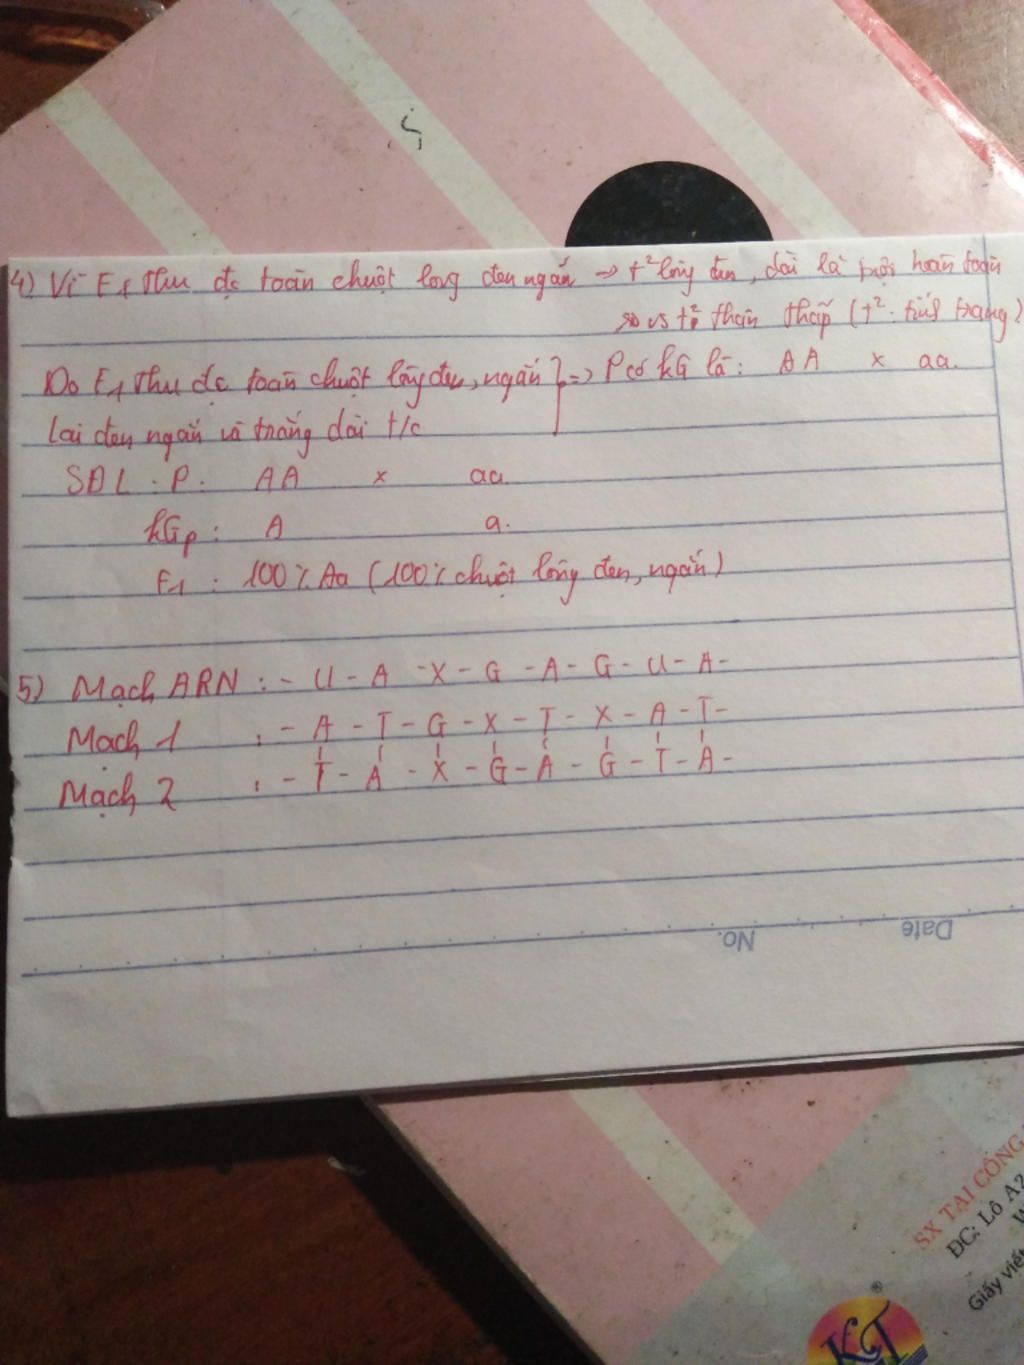 4) Vì F1 thu đc toàn chuột lông đen ngắn → t² lông đen, dài là trội hoàn toàn
so vs t² thân thấp (t²: tính trạng)
Do F1 thu đc toàn chuột lông đen, ngắn } => P có kG là: AA x aa.
Lai đen ngắn và trắng dài t/c
SĐL: P: AA x aa.
kGp: A a.
F1: 100% Aa (100% chuột lông đen, ngắn)
5) Mạch ARN: - U - A - X - G - A - G - U - A -
Mạch 1 : - A - T - G - X - T - X - A - T -
Mạch 2 : - T - A - X - G - A - G - T - A -
No.
Date
SX TẠI CÔNG
ĐC: Lô A2
Giấy viết
KT
®